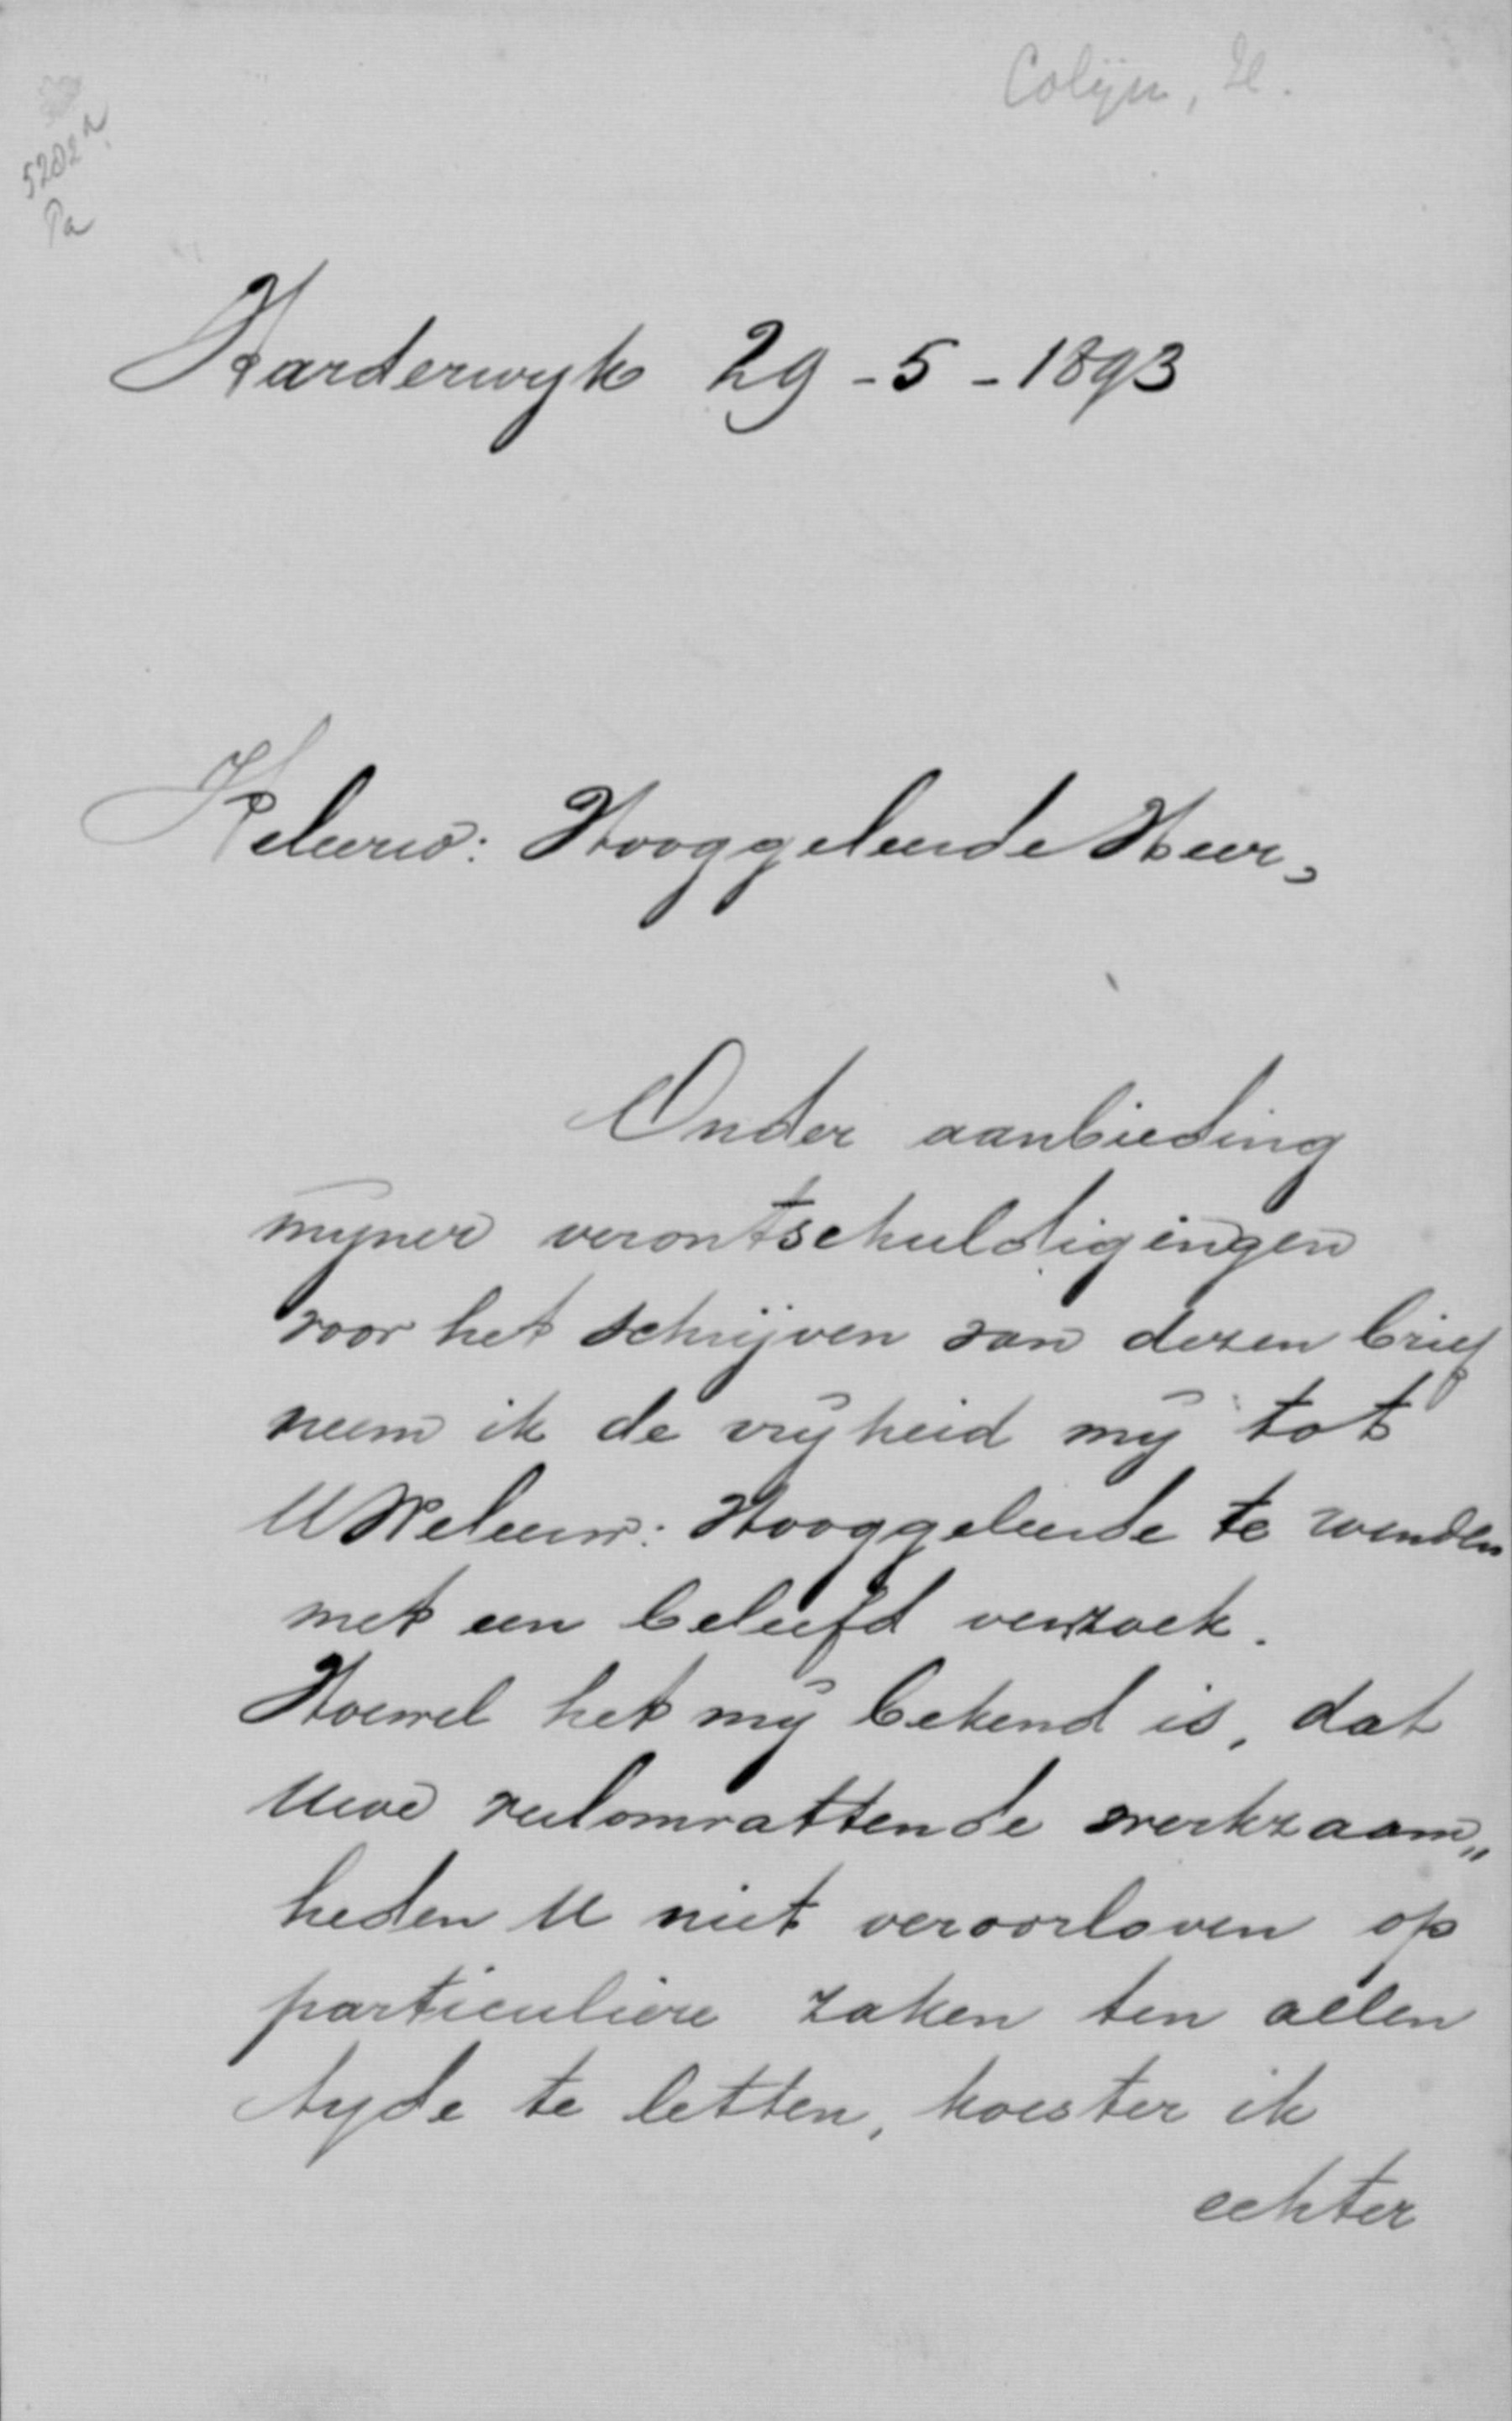 Colijn, H.
5202a
Pa
Harderwyk 29-5-1893
Weleerw: Hooggeleerde Heer,
Onder aanbieding
mijner verontschuldigingen
voor het schrijven van dezen brief
neem ik de vrijheid mij tot
UWeleerw: Hooggeleerde te wenden
met een beleefd verzoek.
Hoewel het mij bekend is, dat
Uwe veelomvattende werkzaam„
heden U niet veroorloven op
particuliere zaken ten allen
tyde te letten, koester ik
echter